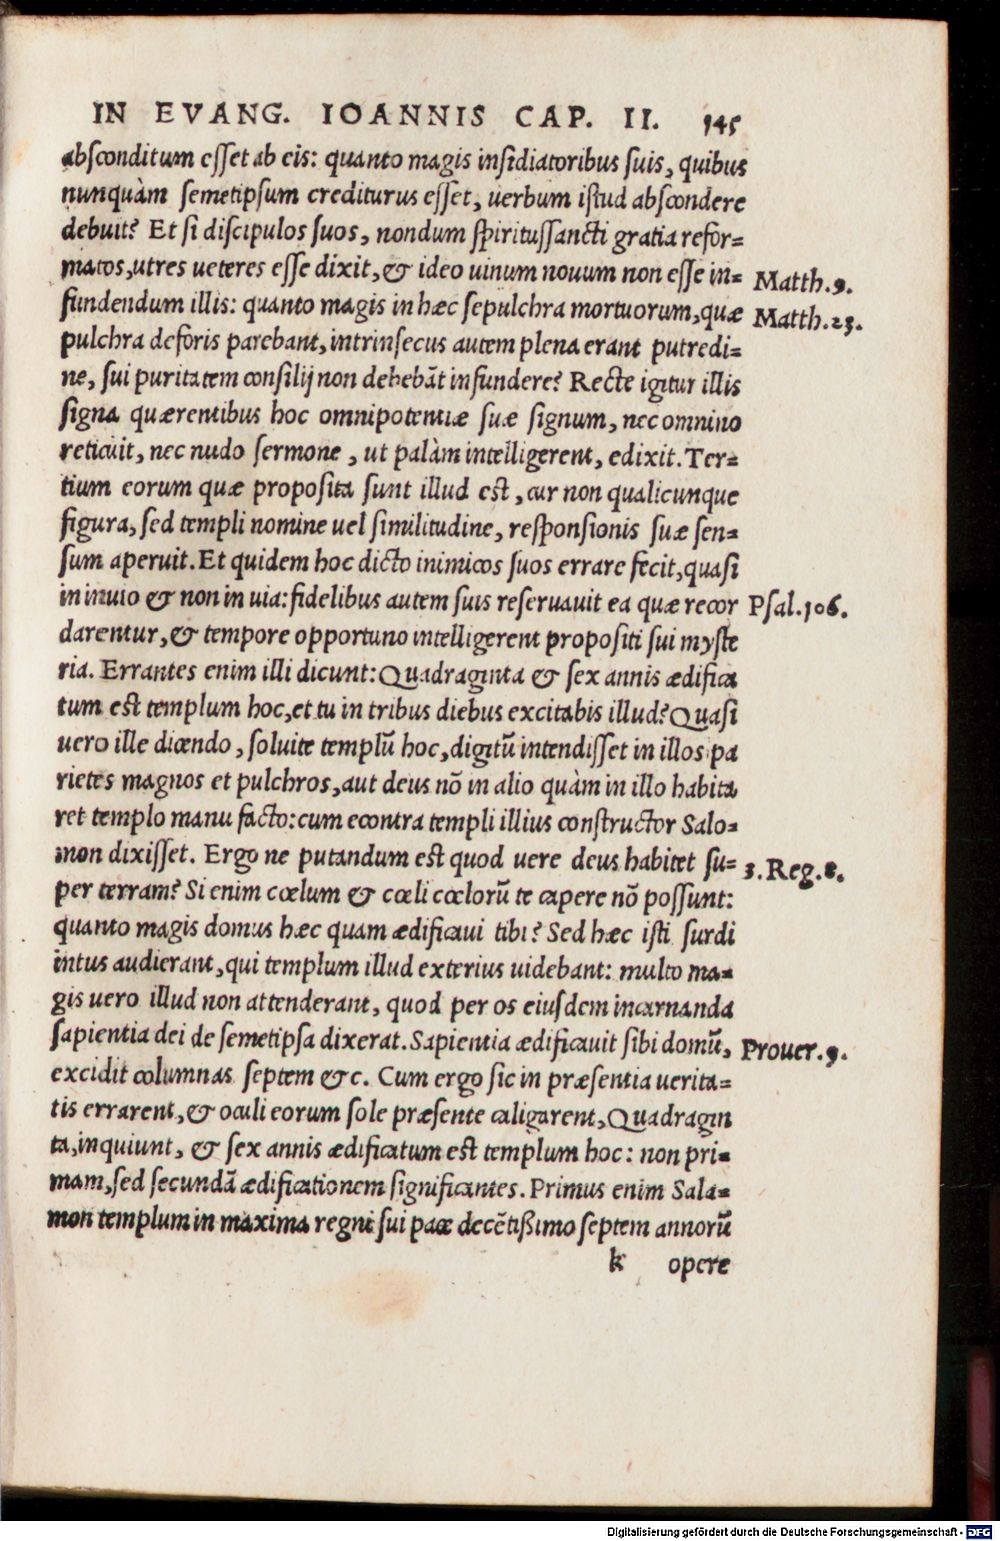 IN EVANG. IOANNIS CAP. II. 145
absconditum esset ab eis: quanto magis insidiatoribus suis, quibus
nunquàm semetipsum crediturus esset, uerbum istud abscondere
debuit? Et si discipulos suos, nondum spiritussancti gratia refor-
matos, utres ueteres esse dixit, & ideo uinum nouum non esse in- Matth.9.
fundendum illis: quanto magis in hæc sepulchra mortuorum, quæ Matth.23.
pulchra deforis parebant, intrinsecus autem plena erant putredi-
ne, sui puritatem consilij non debebāt infundere? Recte igitur illis
signa quærentibus hoc omnipotentiæ suæ signum, nec omnino
reticuit, nec nudo sermone, ut palàm intelligerent, edixit. Ter-
tium eorum quæ proposita sunt illud est, cur non qualicunque
figura, sed templi nomine uel similitudine, responsionis suæ sen-
sum aperuit. Et quidem hoc dicto inimicos suos errare fecit, quasi
in inuio & non in uia: fidelibus autem suis reseruauit ea quæ recor Psal.106.
darentur, & tempore opportuno intelligerent propositi sui myste
ria. Errantes enim illi dicunt: Quadraginta & sex annis ædifica
tum est templum hoc, et tu in tribus diebus excitabis illud? Quasi
uero ille dicendo, soluite templū hoc, digitū intendisset in illos pa
rietes magnos et pulchros, aut deus nō in alio quàm in illo habita
ret templo manu facto: cum econtra templi illius constructor Salo-
mon dixisset. Ergo ne putandum est quod uere deus habitet su- 3. Reg.8.
per terram? Si enim cœlum & cœli cœlorū te capere nō possunt:
quanto magis domus hæc quam ædificaui tibi? Sed hæc isti surdi
intus audierant, qui templum illud exterius uidebant: multo ma-
gis uero illud non attenderant, quod per os eiusdem incarnanda
sapientia dei de semetipsa dixerat. Sapientia ædificauit sibi domū, Prouer.9.
excidit columnas septem &c. Cum ergo sic in præsentia uerita-
tis errarent, & oculi eorum sole præsente caligarent, Quadragin
ta, inquiunt, & sex annis ædificatum est templum hoc: non pri-
mam, sed secundā ædificationem significantes. Primus enim Sala-
mon templum in maxima regni sui pace decētißimo septem annorū
k opere
Digitalisierung gefördert durch die Deutsche Forschungsgemeinschaft - DFG